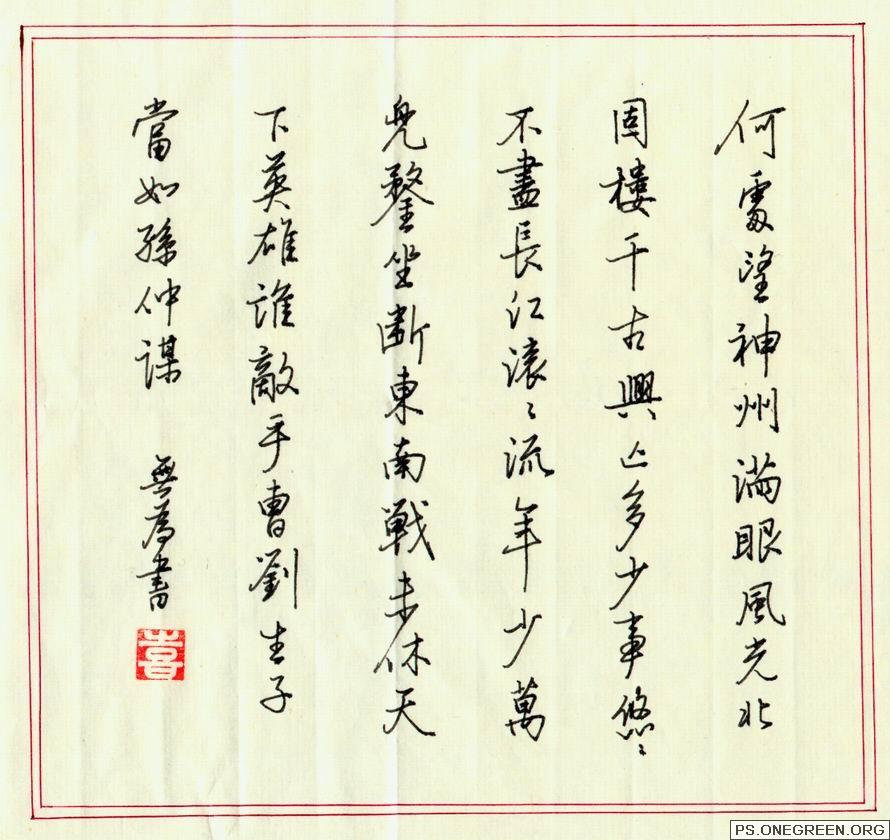 何處望神州滿眼風光北
固樓千古興亡多少事悠〻
不盡長江滾〻流年少萬
兜鍪坐斷東南戰未休天
下英雄誰敵手曹劉生子
當如孫仲謀 無為書
PS.ONEGREEN.ORG